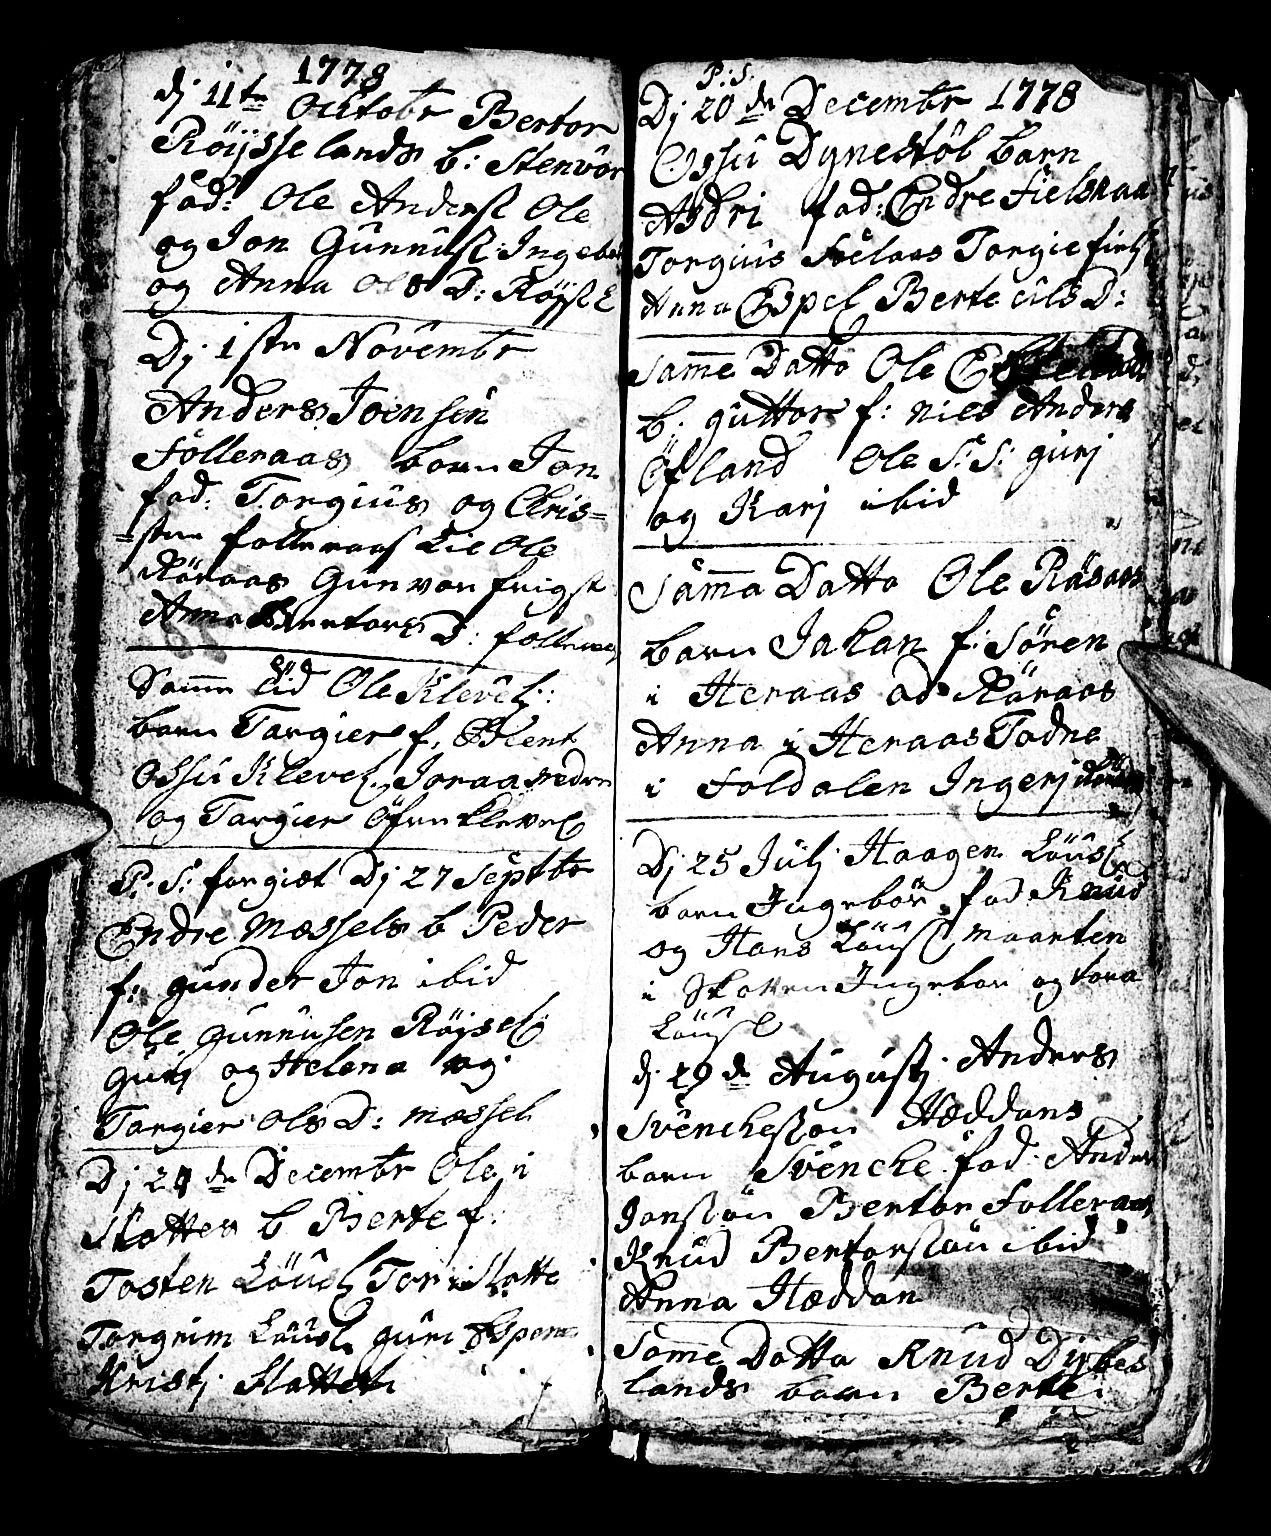 1778
dj 11te Octobr Bertor
Röijsselands b: Stenvör
fad: Ole Anderss Ole
og Jon Gunnuss: Ingebor
og Anna Ols D: Röjss
Dj 1ste Novembr
Anders Joensen
Folleraas barn Jon
fad: Torgius og Chris=
=sten folleraas Lie Ole
Röraas Gunvor frigst
Anna Bertors D: folleraas
Samme tid Ole Klevel:
barn Targier f. Blent
Ossu Klevel. Joraa nedre
og Targier Öfre Klevel
P: S: forgiet Dj 27 Septbr
Endre Mossels b Peder
f: gunder Jon ibid
Ole Gunnusen Röjsel:
Guri og Helena og
Targier Ols D: mossel
Dj 20de Decembr Ole i
Slotten b Berte f:
Tosten Löusl Tor i Slotte
Torgrim Löusl guri Espen
Kristj Slotten
P: S:
Dj 20de Decembr 1778
Ossu Dynestöl barn
Asdri fad: Endre fielskaa
Torgius Foelaas Torgie fielsk
Anna Espel Berte Uls D:
Samme Datto Ole
b. guttorm f: niels Anders
Öfland Ole S: S: gurj
og Karj ibid
Samma Datto Ole Räsaas
barn Jakan f: Sören
i Heraas od Röraas
Anna i Heraas Todne
i Foldalen Ingerj
Dj 25 Julj Haagen Löusl
barn Ingebör fad Knud
og Hans Löusl maarten
i Slotten Ingebor og tora
Löusl
dj 29de Augustj Anders
Svenchesson Hæddans
barn Svenche fad: Anders
Jonssön Bertor Folleraas
Knud Bertorssön ibid
Anna Hæddan
Samme Datto Knud Dybes
lands barn Berte